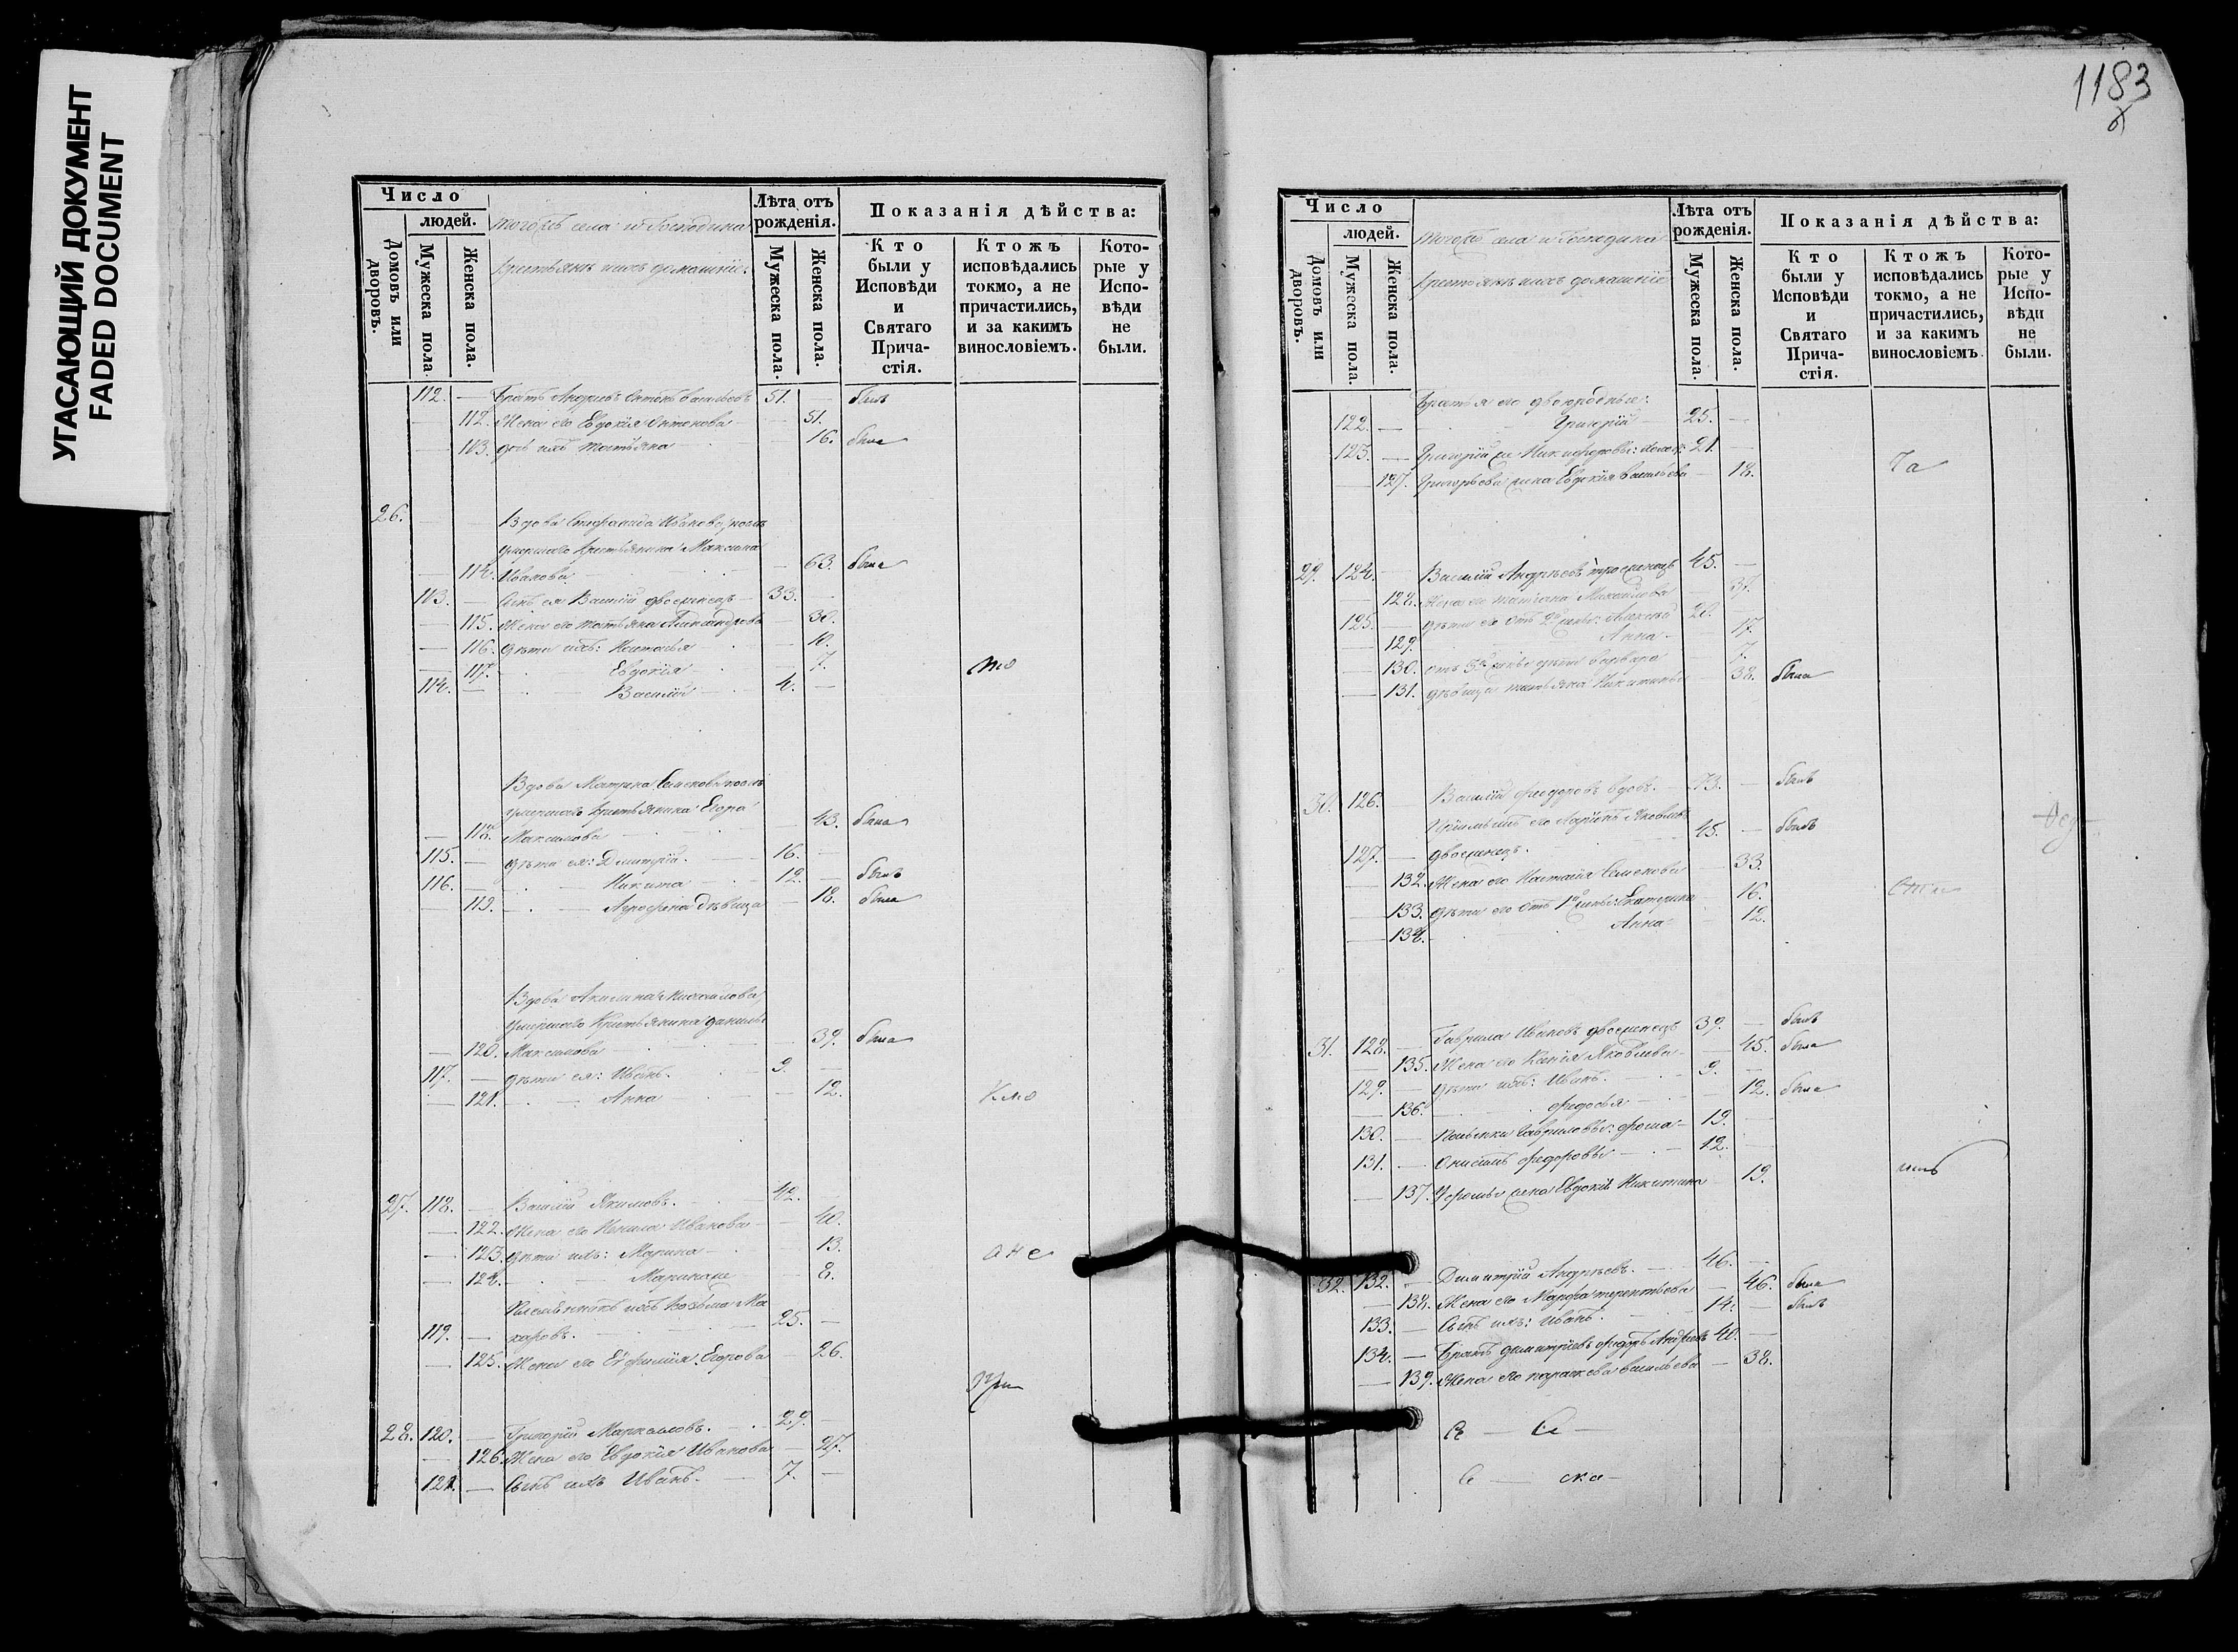 УГАСАЮЩИЙ ДОКУМЕНТ
FADED DOCUMENT
Число
людей.
Домовъ или дворовъ.
Мужеска пола.
Женска пола.
тогожъ села и Господина
крестьянъ ихъ домашніе:
Лѣта отъ рожденія.
Мужеска пола.
Женска пола.
Показанія дѣйства:
Кто были у Исповѣди и Святаго Причастія.
Ктожъ исповѣдались токмо, а не причастились, и за какимъ винословіемъ.
Которые у Исповѣди не были.
112. — Братъ Андреевъ Антонъ Васильевъ 51. — былъ
112. Жена его Евдокія Антонова — 51.
113. дочь ихъ Татьяна — 16. была
26. Вдова Стефанида Иванова, жена
умершаго крестьянина Максима
114. Иванова — 63. была
113. — Сынъ ея Василій двоеженецъ — 33. —
— 115. Жена его Татьяна Александрова — 30.
— 116. дѣти ихъ: Наталья — 10.
— 117. — Евдокія — 7. то
114. — Василій 4. —
Вдова Матрена Семенова жена
умершаго крестьянина Егора
— 118. Максимова — 43. была
115. — дѣти ея: Дмитрій. 16. —
116. — Никита 12. — былъ
— 119. — Агрофена дѣвица — 18. была
Вдова Акилина Михайлова,
умершаго Крестьянина Данилы
— 120. Максимова — 39. была
117. — дѣти ея: Иванъ. 9. —
— 121. — Анна — 12. кмо
27. 118. — Василій Якимовъ. 42. —
— 122. Жена его Ненила Иванова — 40.
— 123. дѣти ихъ: Марина — 13. а не
— 124. — Марина же — 8.
Племянникъ ихъ Козьма Ма
119. — каровъ. 25. —
— 125. Жена его Евфимія Егорова — 26.
при
28. 120. — Григорій Маркеловъ. 29. —
— 126. Жена его Евдокія Иванова — 27.
121. — Сынъ ихъ Иванъ. 7. —
1183
Число
людей.
Домовъ или дворовъ.
Мужеска пола.
Женска пола.
тогожъ села и Господина
крестьянъ ихъ домашніе
Лѣта отъ рожденія.
Мужеска пола.
Женска пола.
Показанія дѣйства:
Кто были у Исповѣди и Святаго Причастія.
Ктожъ исповѣдались токмо, а не причастились, и за какимъ винословіемъ.
Которые у Исповѣди не были.
Братья его двоюродные:
122. — Григорій 25. —
123. — Григорій же Никифоровы: 21. —
— 127. Григорьева жена Евдокія Васильева — 18. ча
29. 124. — Василій Андреевъ троеженецъ 45. —
— 128. Жена его Татіана Михайлова — 37.
125. — дѣти его отъ 2й жены: Алексѣй 20. —
— 129. Анна — 17.
— 130. отъ 3й жены дочь Варвара — 7.
— 131. дѣвица Татьяна Никитина — 38. была
30. 126. Василій Федоровъ вдовъ. — 73. — былъ
Яковлевъ
127. — двоеженецъ. 45. — былъ
— 132. Жена его Наталія Семенова — 33.
— 133. дѣти его отъ 1й жены: Екатерина 16.
— 134. Анна — 12.
31. 128. — Гаврила Ивановъ двоеженецъ 39. — былъ
— 135. Жена его Ксенія Яковлева — 45. была
129. — дѣти ихъ: Иванъ. 9. —
— 136. Федосья — 12. была
130. — Пасынки Гавриловы: Фома — 19.
131. — Онисимъ Федоровы — 12.
— 137. У Фомы жена Евдокія Никитина 19.
32. 132. — Димитрій Андреевъ. — 46. —
— 138. Жена его Марфа Терентьева — 46. была
133. — Сынъ ихъ: Иванъ. 14. — былъ
134. — Братъ Димитріевъ Федоръ Андреевъ 40. —
— 139. Жена его Параскева Васильева — 38.